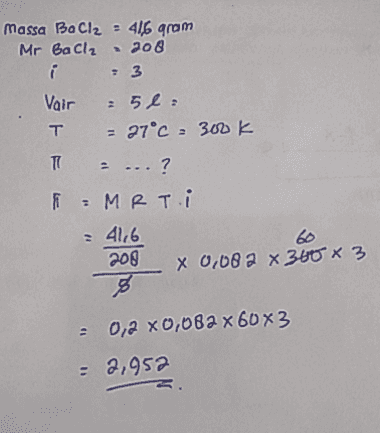 Massa BaCl2 = 41,6 gram
Mr BaCl2 = 208
i = 3
Vair = 5 l =
T = 27°C = 300 K
π = ... ?
π = M R T . i
= 41,6
60
208 x 0,082 x 300 x 3
5
= 0,2 x 0,082 x 60 x 3
= 2,952